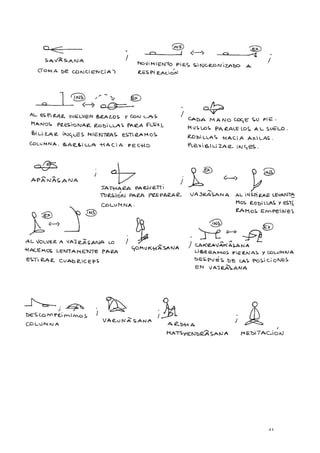 INS
EX
SAVĀSANA
(TOMA DE CONCIENCIA)
MOVIMIENTO PIES SINCRONIZADO A
RESPIRACIÓN
INS
EX
AL ESPIRAR VUELVEN BRAZOS Y CON LAS
MANOS PRESIONAR RODILLAS PARA FLEXI
BILIZAR INGLES MIENTRAS ESTIRAMOS
COLUMNA. BARBILLA HACIA PECHO.
CADA MANO COGE SU PIE.
MUSLOS PARALELOS AL SUELO.
RODILLAS HACIA AXILAS.
FLEXIBILIZAR INGLES.
APĀNĀSANA
JATHARA PARIVRTTI
TORSIÓN PARA PREPARAR
COLUMNA.
EX
INS
VAJRĀSANA. AL INSPIRAR LEVANTA
MOS RODILLAS Y ESTI
RAMOS EMPEINES
EX
INS
AL VOLVER A VAJRĀSANA LO
HACEMOS LENTAMENTE PARA
ESTIRAR CUADRICEPS
GOMUKHĀSANA
INS
EX
CAKRAVĀKĀSANA
LIBERAMOS PIERNAS Y COLUMNA
DESPUÉS DE LAS POSICIONES
EN VAJRĀSANA
DESCOMPRIMIMOS
COLUMNA
VARUNĀSANA
ARDHA
MATSYENDRĀSANA
MEDITACIÓN